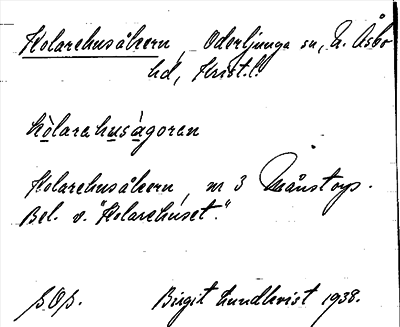 Kolarehusåkern, Oderljunga sn, N. Åsbo
hd, Krist.l.
kòlarahuságoran
Kolarehusåkern, nr 3 Månstorp.
Bel. v. "Kolarehuset."
Birgit Lundkvist 1938.